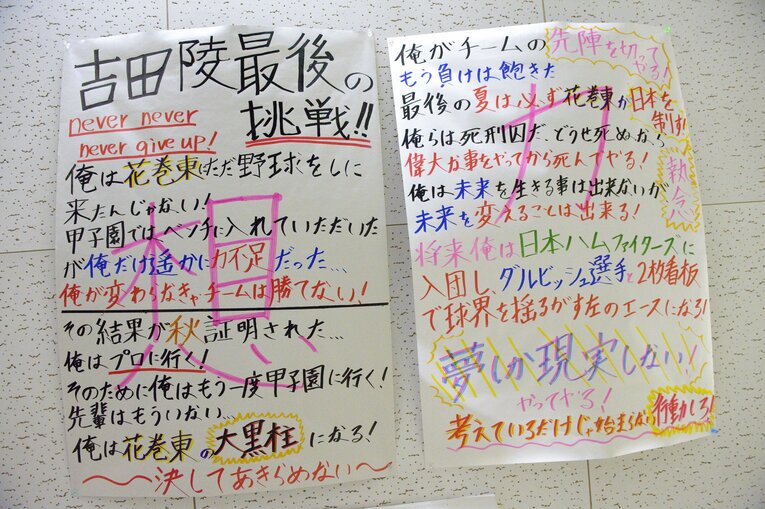 吉田陵最後の
挑戦!!
never never
never give up!
俺は花巻東にただ野球をしに
来たんじゃない!
甲子園では、ベンチに入れていただいた
が俺だけ遥かに力不足だった…
俺が変わらなきゃチームは勝てない!
その結果が秋証明された…
俺はプロに行く!
そのために俺はもう一度甲子園に行く!
先輩はもういない…
俺は花巻東の大黒柱になる!
〜決してあきらめない〜
想
俺がチームの先陣を切って
やる!
もう負けは飽きた
最後の夏は必ず花巻東が日本を
制す!
俺らは死刑囚だ、どうせ死ぬなら
偉大な事をやってから死んでやる!
執念
俺は未来を生きる事は出来ないが
未来を変えることは出来る!
将来俺は日本ハムファイターズに
入団し、ダルビッシュ選手と2枚看板
で球界を揺るがす左のエースになる!
夢しか現実しない!
やってやる!
考えているだけじゃ始まらない行動しろ!
力